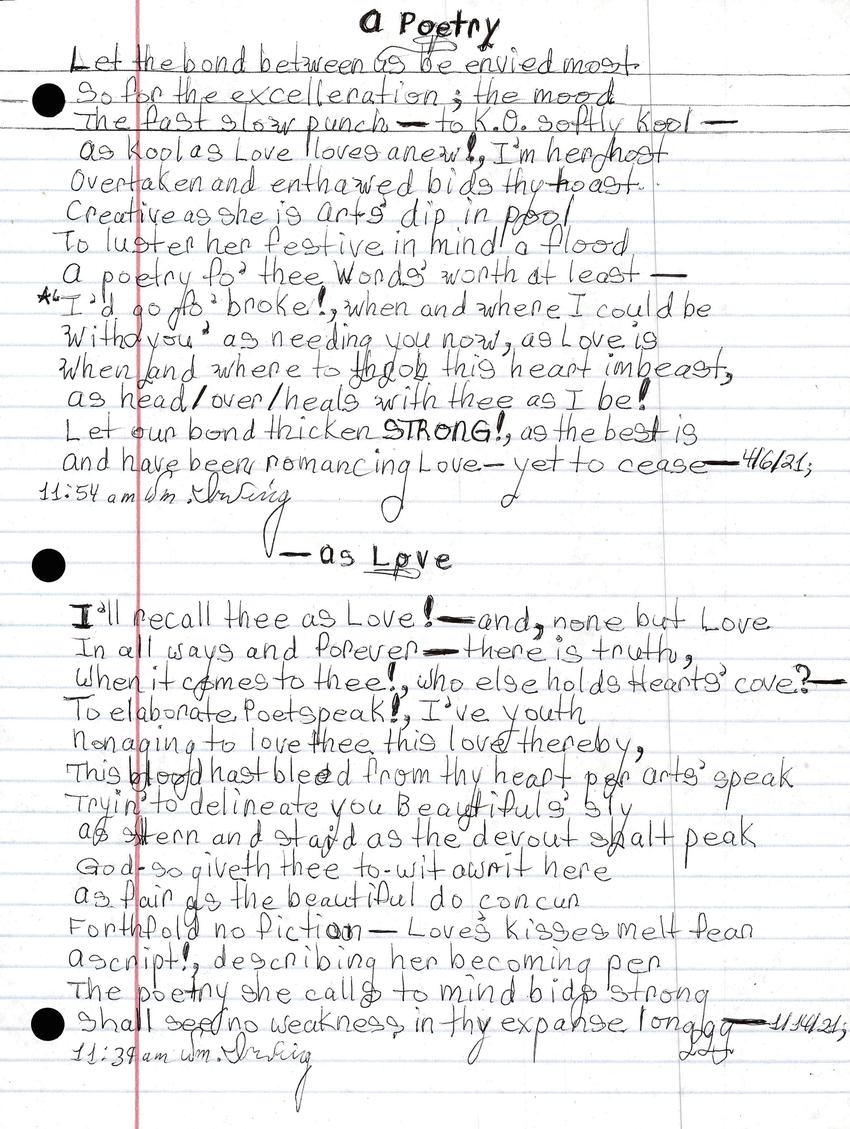 a Poetry
Let the bond between us be envied most
So for the excelleration; the mood
The fast slow punch — to K.O. softly Kool —
as Kool as Love loves anew!, I'm her host
Overtaken and enthawed bids thy toast
Creative as she is arts' dip in pool
To luster her festive in mind a flood
a poetry fo' thee Words' worth at least —
I'd go fo' broke!, when and where I could be
With you' as needing you now, as Love is
When and where to throb this heart imbeast,
as head/over/heals with thee as I be!
Let our bond thicken STRONG!, as the best is
and have been romancing Love— yet to cease—4/6/21;
11:54 am Wm. Irving
— as Love
I'll recall thee as Love!—and, none but Love
In all ways and forever— there is truth,
When it comes to thee!, who else holds Hearts' cove?—
To elaborate Poetspeak!, I've youth
Nonaging to love thee this love thereby,
This blood hast bleed from thy heart per arts' speak
Tryin' to delineate you Beautifuls' sly
as stern and staid as the devout shalt peak
God-so giveth thee to-wit awrit here
as fair as the beautiful do concur
Forthfold no fiction— Love's Kisses melt fear
ascript!, describing her becoming per
The poetry she calls to mind bids strong
Shall seed no weakness, in thy expanse longggg—1/14/21;
11:39 am Wm. Irving